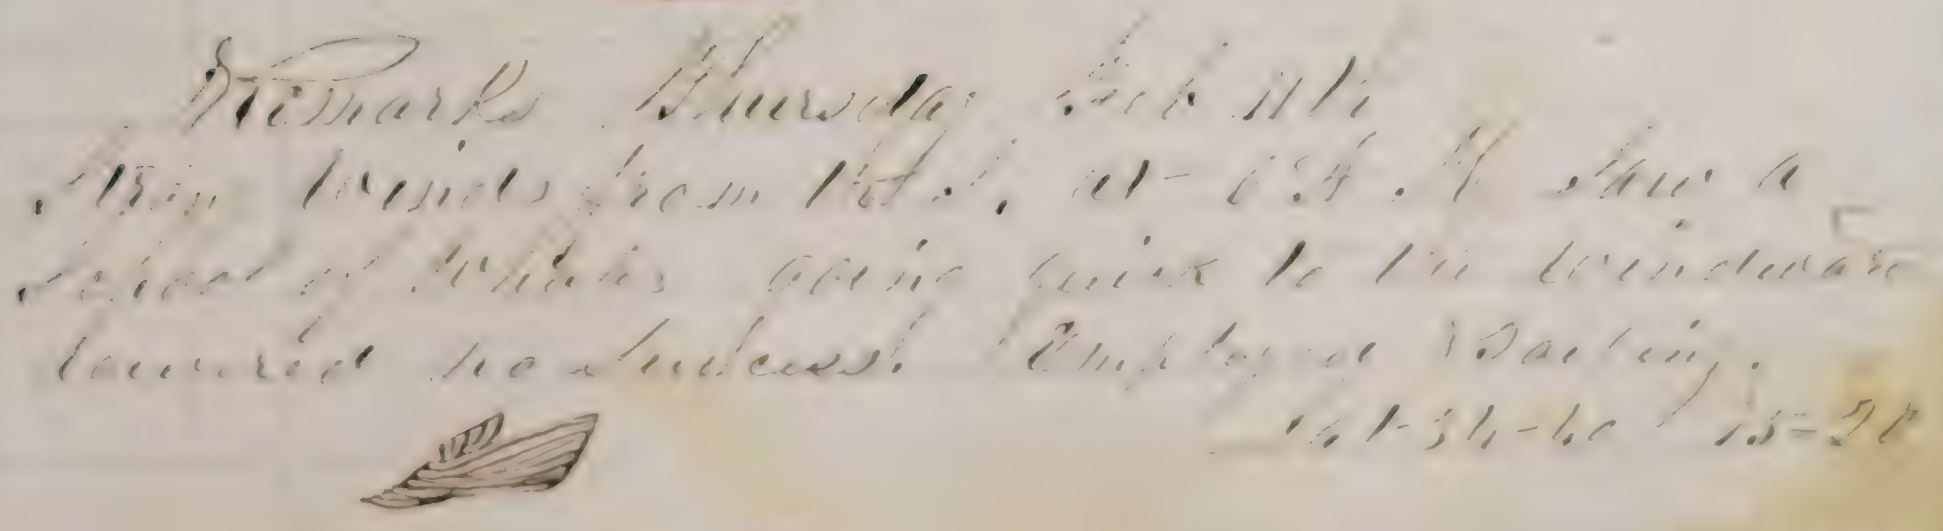 Remarks Thursday Feb 11th
Strong winds from W S. at 6 A. M saw a
school of Whales going quick to the windward
lowered no Success. Employed Boiling.
Lat-34-40 15=28